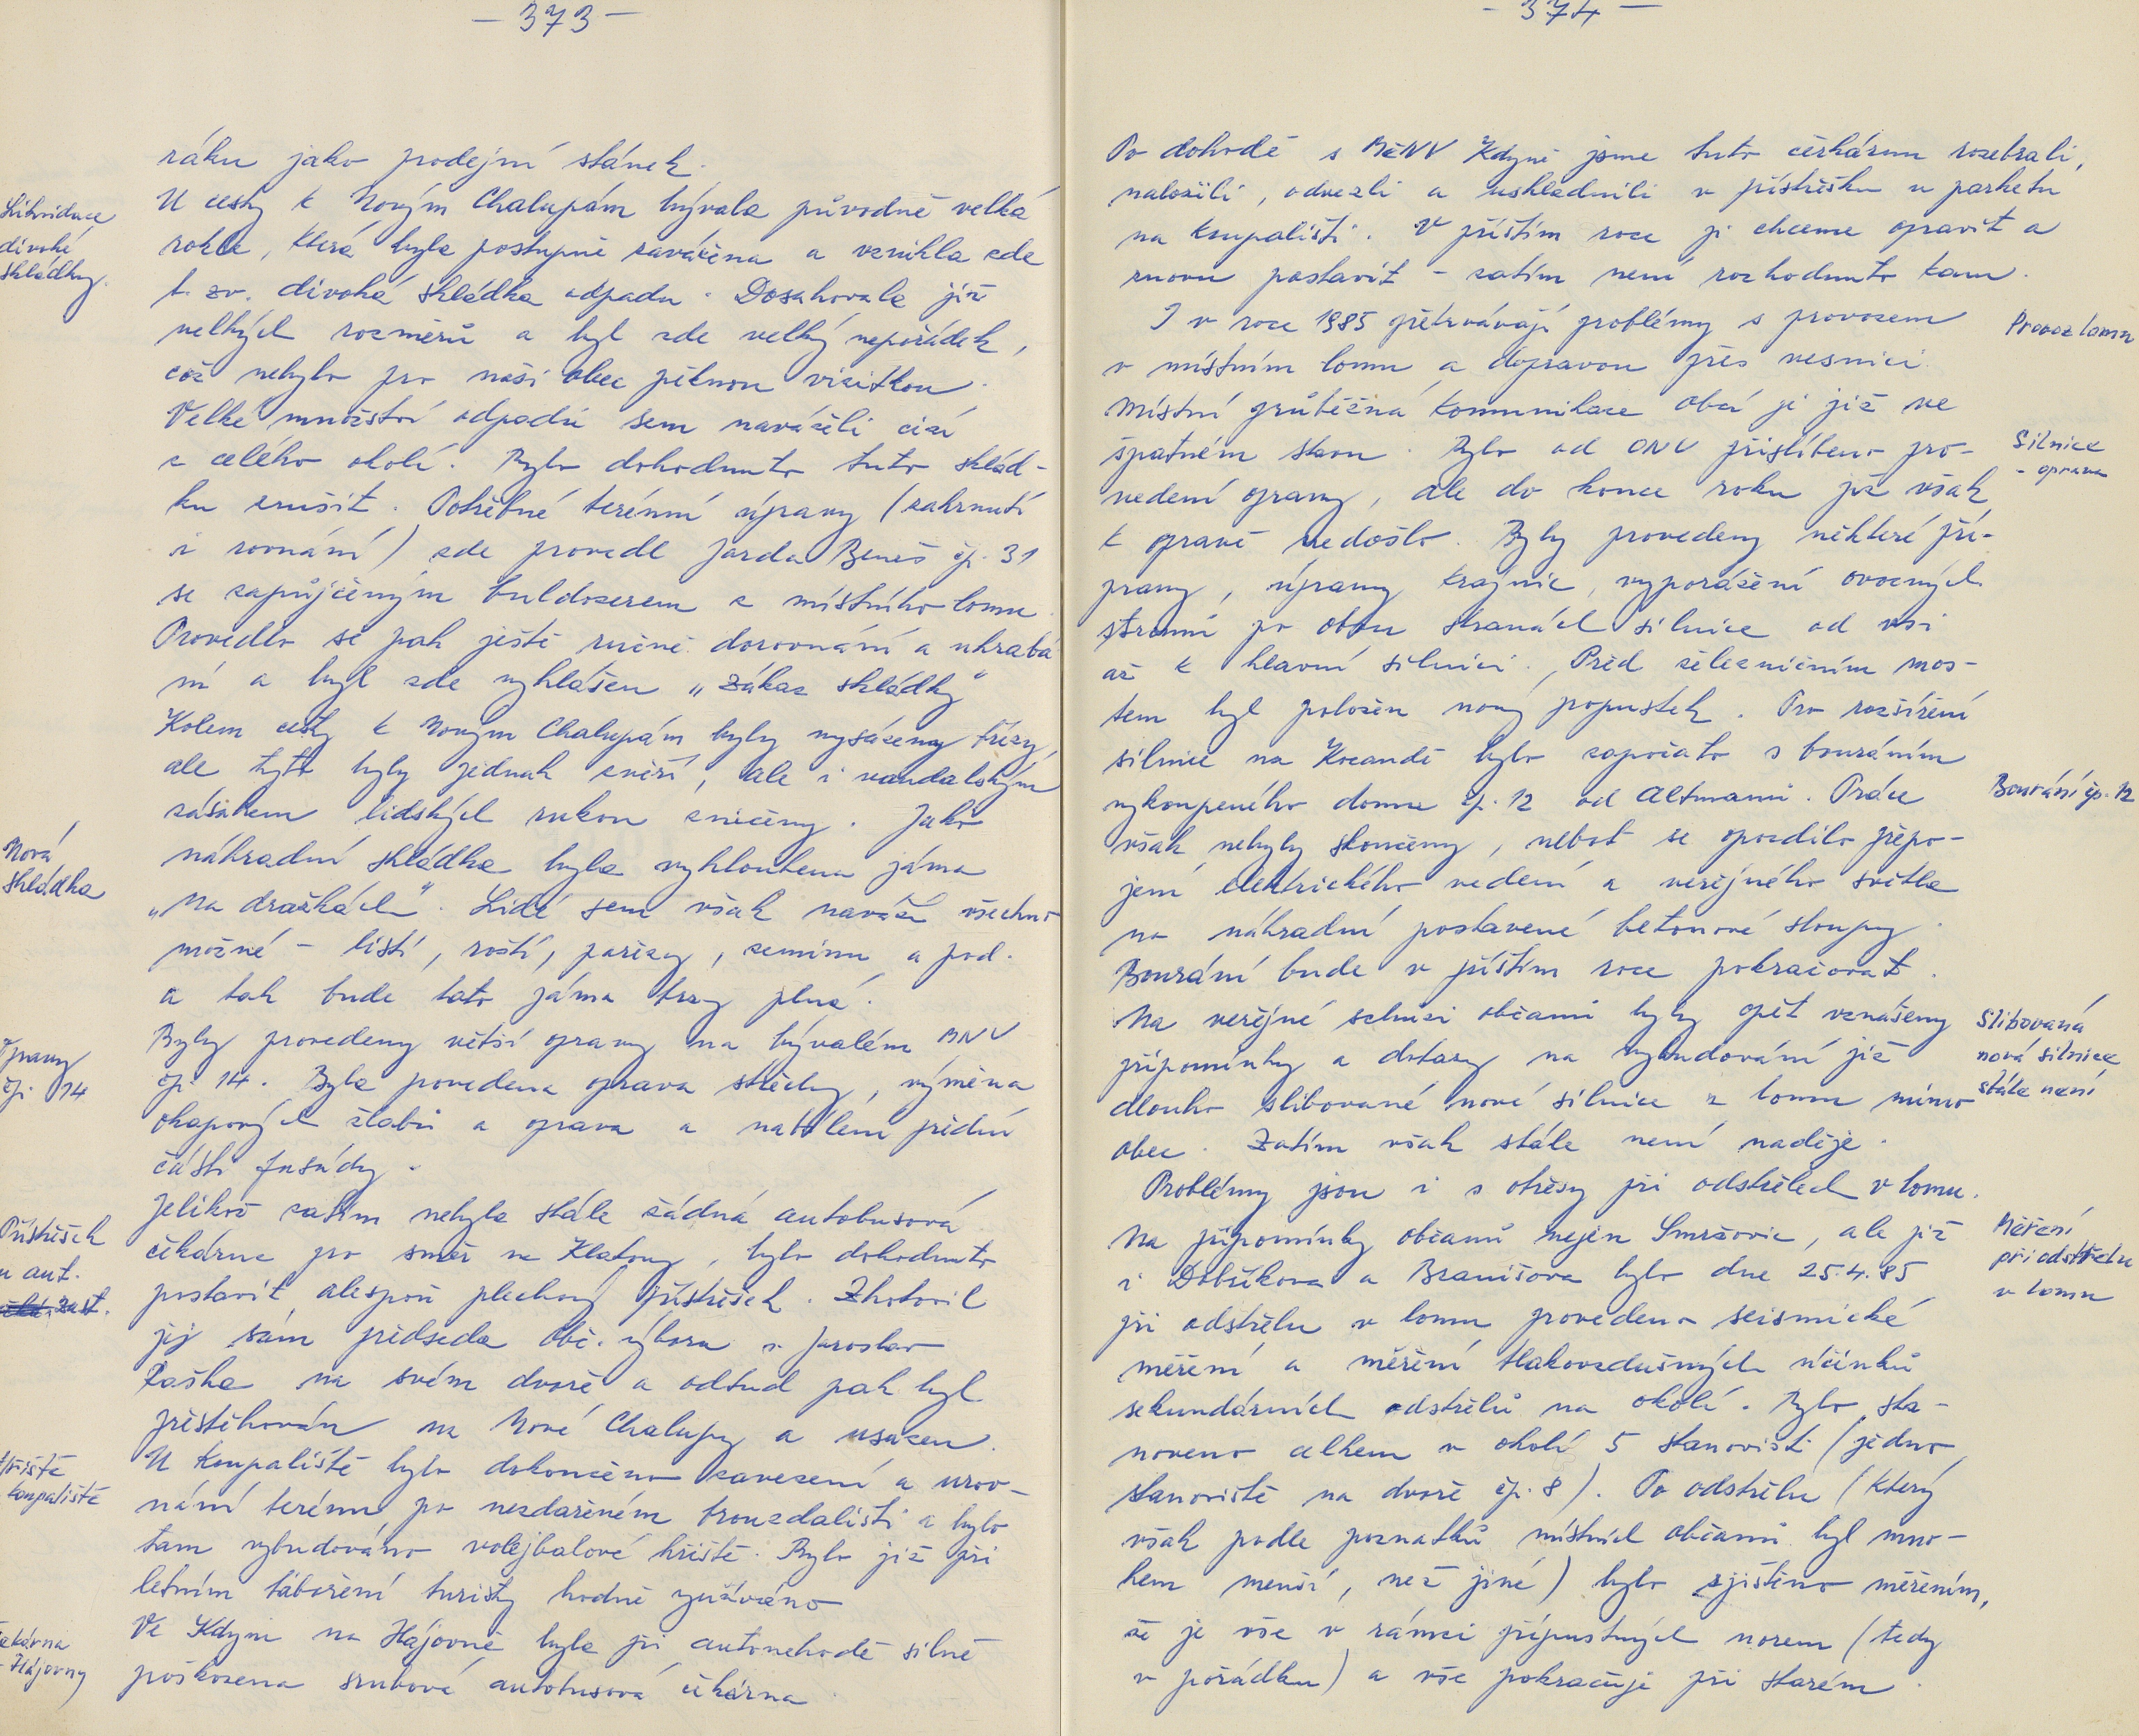 - 373 -
ráku jako prodejní stánek.
Likvidace
divoké
skládky.
U cesty k Novým Chalupám bývala původně velká
rokle, která byla postupně zavážena a vznikla zde
t. zv. divoká skládka odpadu. Dosahovala již
velkých rozměrů a byl zde velký nepořádek,
což nebylo pro naši obec pěknou vizitkou.
Velké množství odpadů sem naváželi cizí
z celého okolí. Bylo dohodnuto tuto sklád-
ku zrušit. Potřebné terénní úpravy (zahrnutí
i rovnání) zde provedl Jarda Beneš čp. 31
se zapůjčeným buldozerem z místního lomu.
Provedlo se pak ještě ruční dorovnání a uhrabá
ní a byl zde vyhlášen „Zákaz skládky"
Kolem cesty k Novým Chalupám byly vysázeny břízy,
ale tyto byly jednak zvěří, ale i vandalským
zásahem lidských rukou zničeny. Jako
Nová
skládka
náhradní skládka byla vyhloubena jáma
„Na dražkách". Lidé sem však naváží všechno
možné - listí, roští, pařezy, zeminu a pod.
a tak bude tato jáma brzy plná.
Úpravy
čp. 14
Byly provedeny větší opravy na bývalém MNV
čp. 14. Byla povedena oprava střechy, výměna
okapových žlabů a oprava a natření přední
části fasády.
Přístřešek
u aut.
zast.
Jelikož zatím nebyla stále žádná autobusová
čekárna pro směr na Klatovy, bylo dohodnuto
postavit alespoň plechový přístřešek. Zhotovil
jej sám předseda obč. výboru s. Jaroslav
Raška na svém dvoře a odtud pak byl
přestěhován na Nové Chalupy a usazen.
Hřiště
koupaliště
U koupaliště bylo dokončeno zavezení a urov-
nání terénu po nezdařeném brouzdališti a bylo
tam vybudováno volejbalové hřiště. Bylo již při
letním táboření turisty hodně využíváno
čekárna
Hájovny
Ve Kdyni na Hájovně byla při autonehodě silně
poškozena srubová autobusová čekárna.
- 374 -
Po dohodě s MěNV Kdyně jsme tuto čekárnu rozebrali,
naložili, odvezli a uskladnili v přístřešku u parketu
na koupališti. V příštím roce ji chceme opravit a
znovu postavit - zatím není rozhodnuto kam.
I v roce 1985 přetrvávají problémy s provozem
Provoz lomu
v místním lomu a dopravou přes vesnici.
Místní průběžná komunikace obcí je již ve
špatném stavu. Bylo od ONV přislíbeno pro-
Silnice
- oprava
vedení opravy, ale do konce roku již však
k opravě nedošlo. Byly provedeny některé pří-
pravy, úpravy krajnic, vyporážení ovocných
stromů po obou stranách silnice od vsi
až k hlavní silnici. Před železničním mos-
tem byl položen nový propustek. Pro rozšíření
silnice na Kocandě bylo započato s bouráním
vykoupeného domu čp. 12 od Altmanů. Práce
Bourání čp. 12
však nebyly skončeny, neboť se opozdilo přepo-
jení elektrického vedení a veřejného světla
na náhradní postavené betonové sloupy.
Bourání bude v příštím roce pokračovat.
Na veřejné schůzi občanů byly opět vznášeny
připomínky a dotazy na vybudování již
dlouho slibované nové silnice z lomu mimo
obec. Zatím však stále není naděje.
Slibovaná
nová silnice
stále není
Problémy jsou i s otřesy při odstřelech v lomu.
Na připomínky občanů nejen Smržovic, ale již
i Dobříkova a Branišova bylo dne 25.4.85
při odstřelu v lomu provedeno seismické
Měření
při odstřelu
v lomu
měření a měření tlakovzdušných účinků
sekundárních odstřelů na okolí. Bylo sta-
noveno celkem v okolí 5 stanovišť (jedno
stanoviště na dvoře čp. 8). Po odstřelu (který
však podle poznatků místních občanů byl mno-
hem menší, než jiné) bylo zjištěno měřením,
že je vše v rámci přípustných norem (tedy
v pořádku) a vše pokračuje při starém.